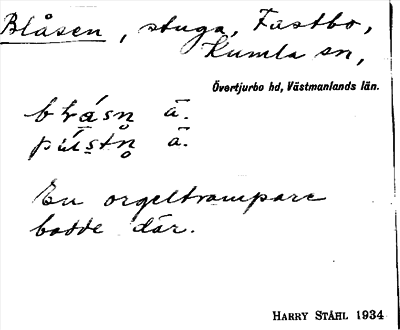 Blåsen, stuga, Fastbo,
Kumla sn,
Övertjurbo hd, Västmanlands län.
blǻsn̥ ä.
pǘstn̥ ä.
En orgeltrampare
bodde där.
HARRY STÅHL 1934